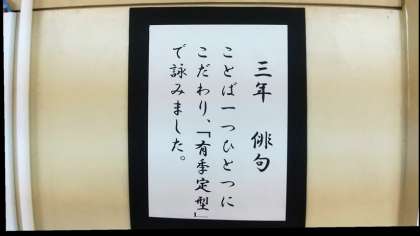 三年 俳句
ことば一つひとつに
こだわり、「有季定型」
で詠みました。